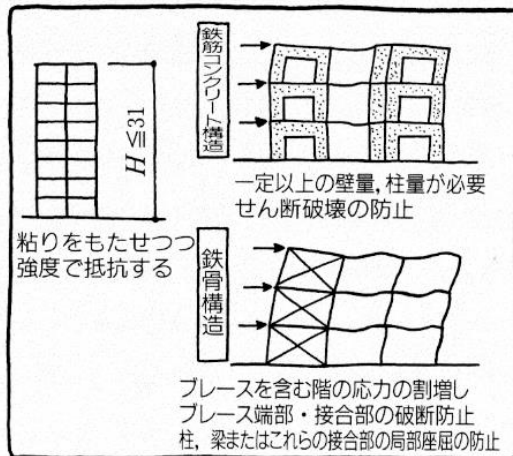 H≦31
粘りをもたせつつ
強度で抵抗する
鉄筋コンクリート構造
一定以上の壁量,柱量が必要
せん断破壊の防止
鉄骨構造
ブレースを含む階の応力の割増し
ブレース端部・接合部の破断防止
柱,梁またはこれらの接合部の局部座屈の防止